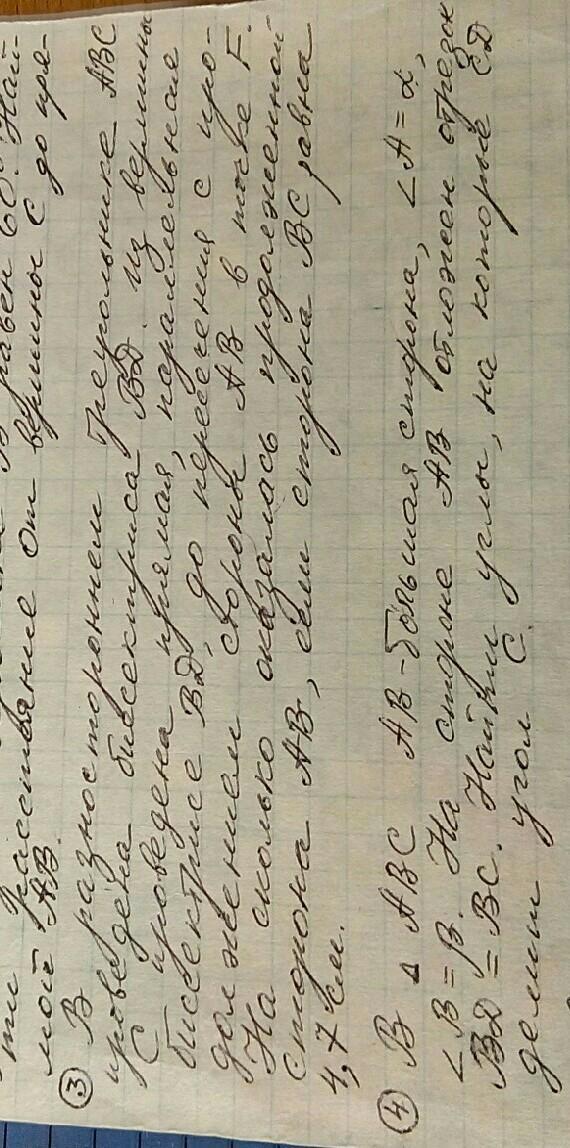 равен 60°. Най-
ти расстояние от вершины С до пря-
мой АВ.
③ В разностороннем треугольнике АВС
проведена биссектриса ВD. Из вершины
С проведена прямая, параллельная
биссектрисе ВD, до пересечения с про-
должением стороны АВ в точке F.
На сколько оказалась продолженной
сторона АВ, если сторона ВС равна
4,7 см.
④ В △ АВС АВ - большая сторона, ∠А = α,
∠В = β. На стороне АВ отложен отрезок
ВD = ВС. Найти углы, на которые СD
делит угол С.